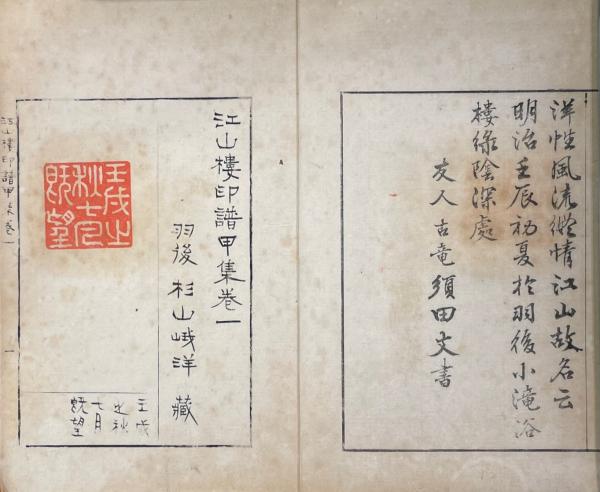 洋性風流縱情江山故名云
明治壬辰初夏於羽後小滝浴
樓綠陰深處
友人古竜須田文書
江山樓印譜甲集卷一
羽後 杉山峨洋 藏
壬戌之
秋七月
既望
壬戌
之秋
七月
既望
江山樓印譜甲集卷一
一